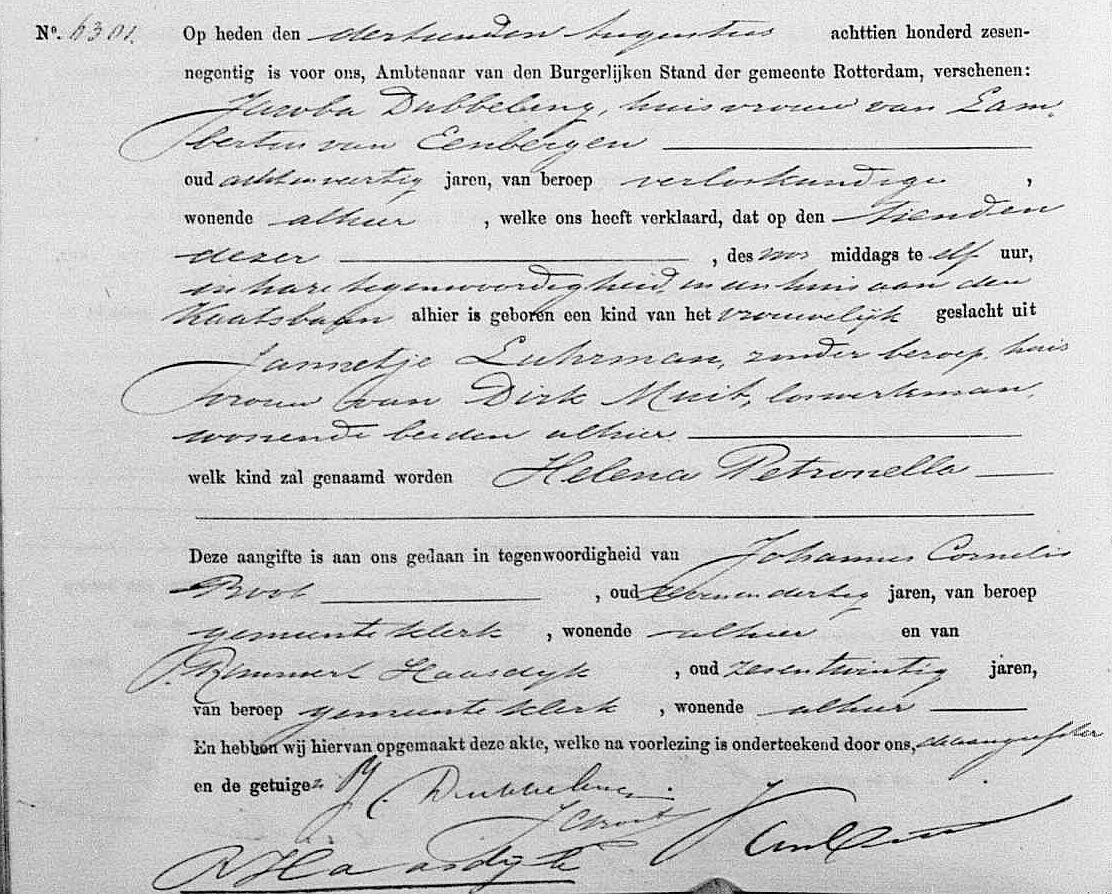 No. 6301. Op heden den dertienden Augustus achttien honderd zesen-
negentig is voor ons, Ambtenaar van den Burgerlijken Stand der gemeente Rotterdam, verschenen:
Jacoba Dubbeling, huisvrouw van Lam-
bertus van Eenbergen
oud achtenveertig jaren, van beroep verloskundige,
wonende alhier, welke ons heeft verklaard, dat op den tienden
dezer, des voor middags te elf uur,
in hare tegenwoordigheid, in een huis aan den
Kaatsbaan alhier is geboren een kind van het vrouwelijk geslacht uit
Jannetje Luhrman, zonder beroep, huis
vrouw van Dirk Muit, loswerkman,
wonende beiden alhier
welk kind zal genaamd worden Helena Petronella
Deze aangifte is aan ons gedaan in tegenwoordigheid van Johannes Cornelis
Boot, oud zevenendertig jaren, van beroep
gemeenteklerk, wonende alhier en van
Remmert Haasdyk, oud zesentwintig jaren,
van beroep gemeenteklerk, wonende alhier
En hebben wij hiervan opgemaakt deze akte, welke na voorlezing is onderteekend door ons, de aangeefster
en de getuigen
J. Dubbeling.
JCBoot
R Haasdyk